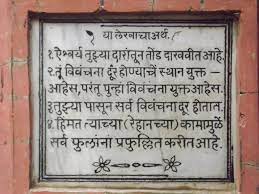 या लेखाचा अर्थ.
१. ऐश्वर्य तुझ्या दारांतून तोंड दाखवीत आहे.
२. तू विवंचना दूर होण्याचें स्थान युक्त -
आहेस, परंतू पुन्हां विवंचना युक्त आहेस.
३. तुझ्या पासून सर्व विवंचना दूर होतात.
४. हिंमत त्याच्या (रेहानच्या) कामामुळें
सर्व फुलांनां प्रफुल्लित करीत आहे.